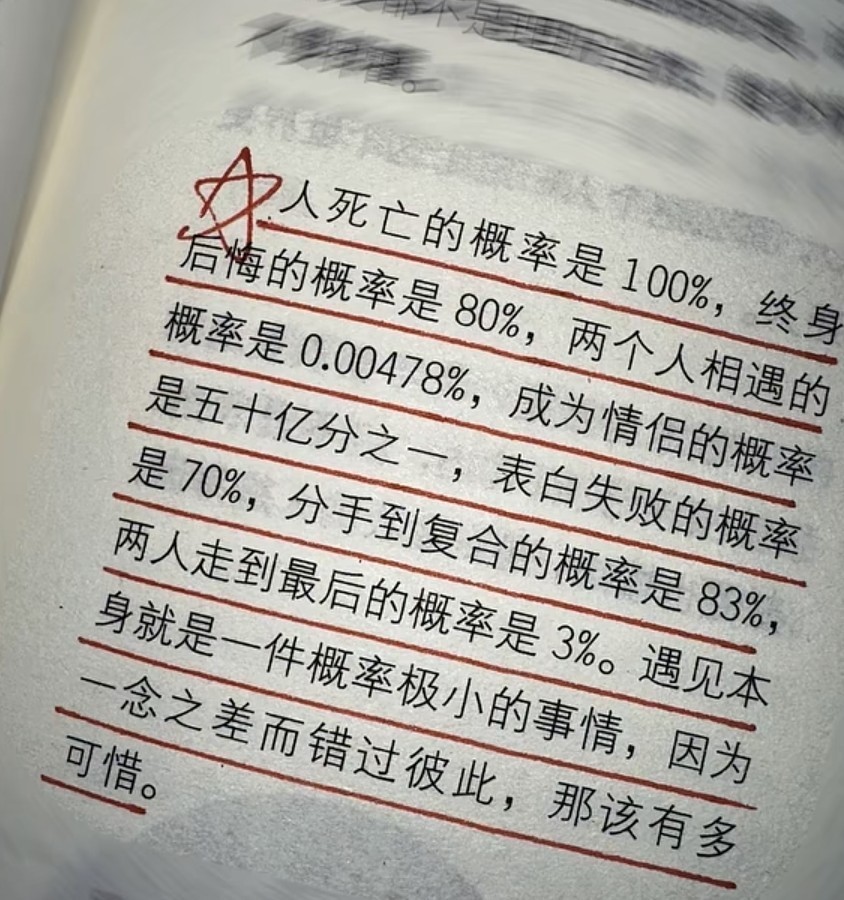 人死亡的概率是 100%，终身
后悔的概率是 80%，两个人相遇的
概率是 0.00478%，成为情侣的概率
是五十亿分之一，表白失败的概率
是 70%，分手到复合的概率是 83%，
两人走到最后的概率是 3%。遇见本
身就是一件概率极小的事情，因为
一念之差而错过彼此，那该有多
可惜。